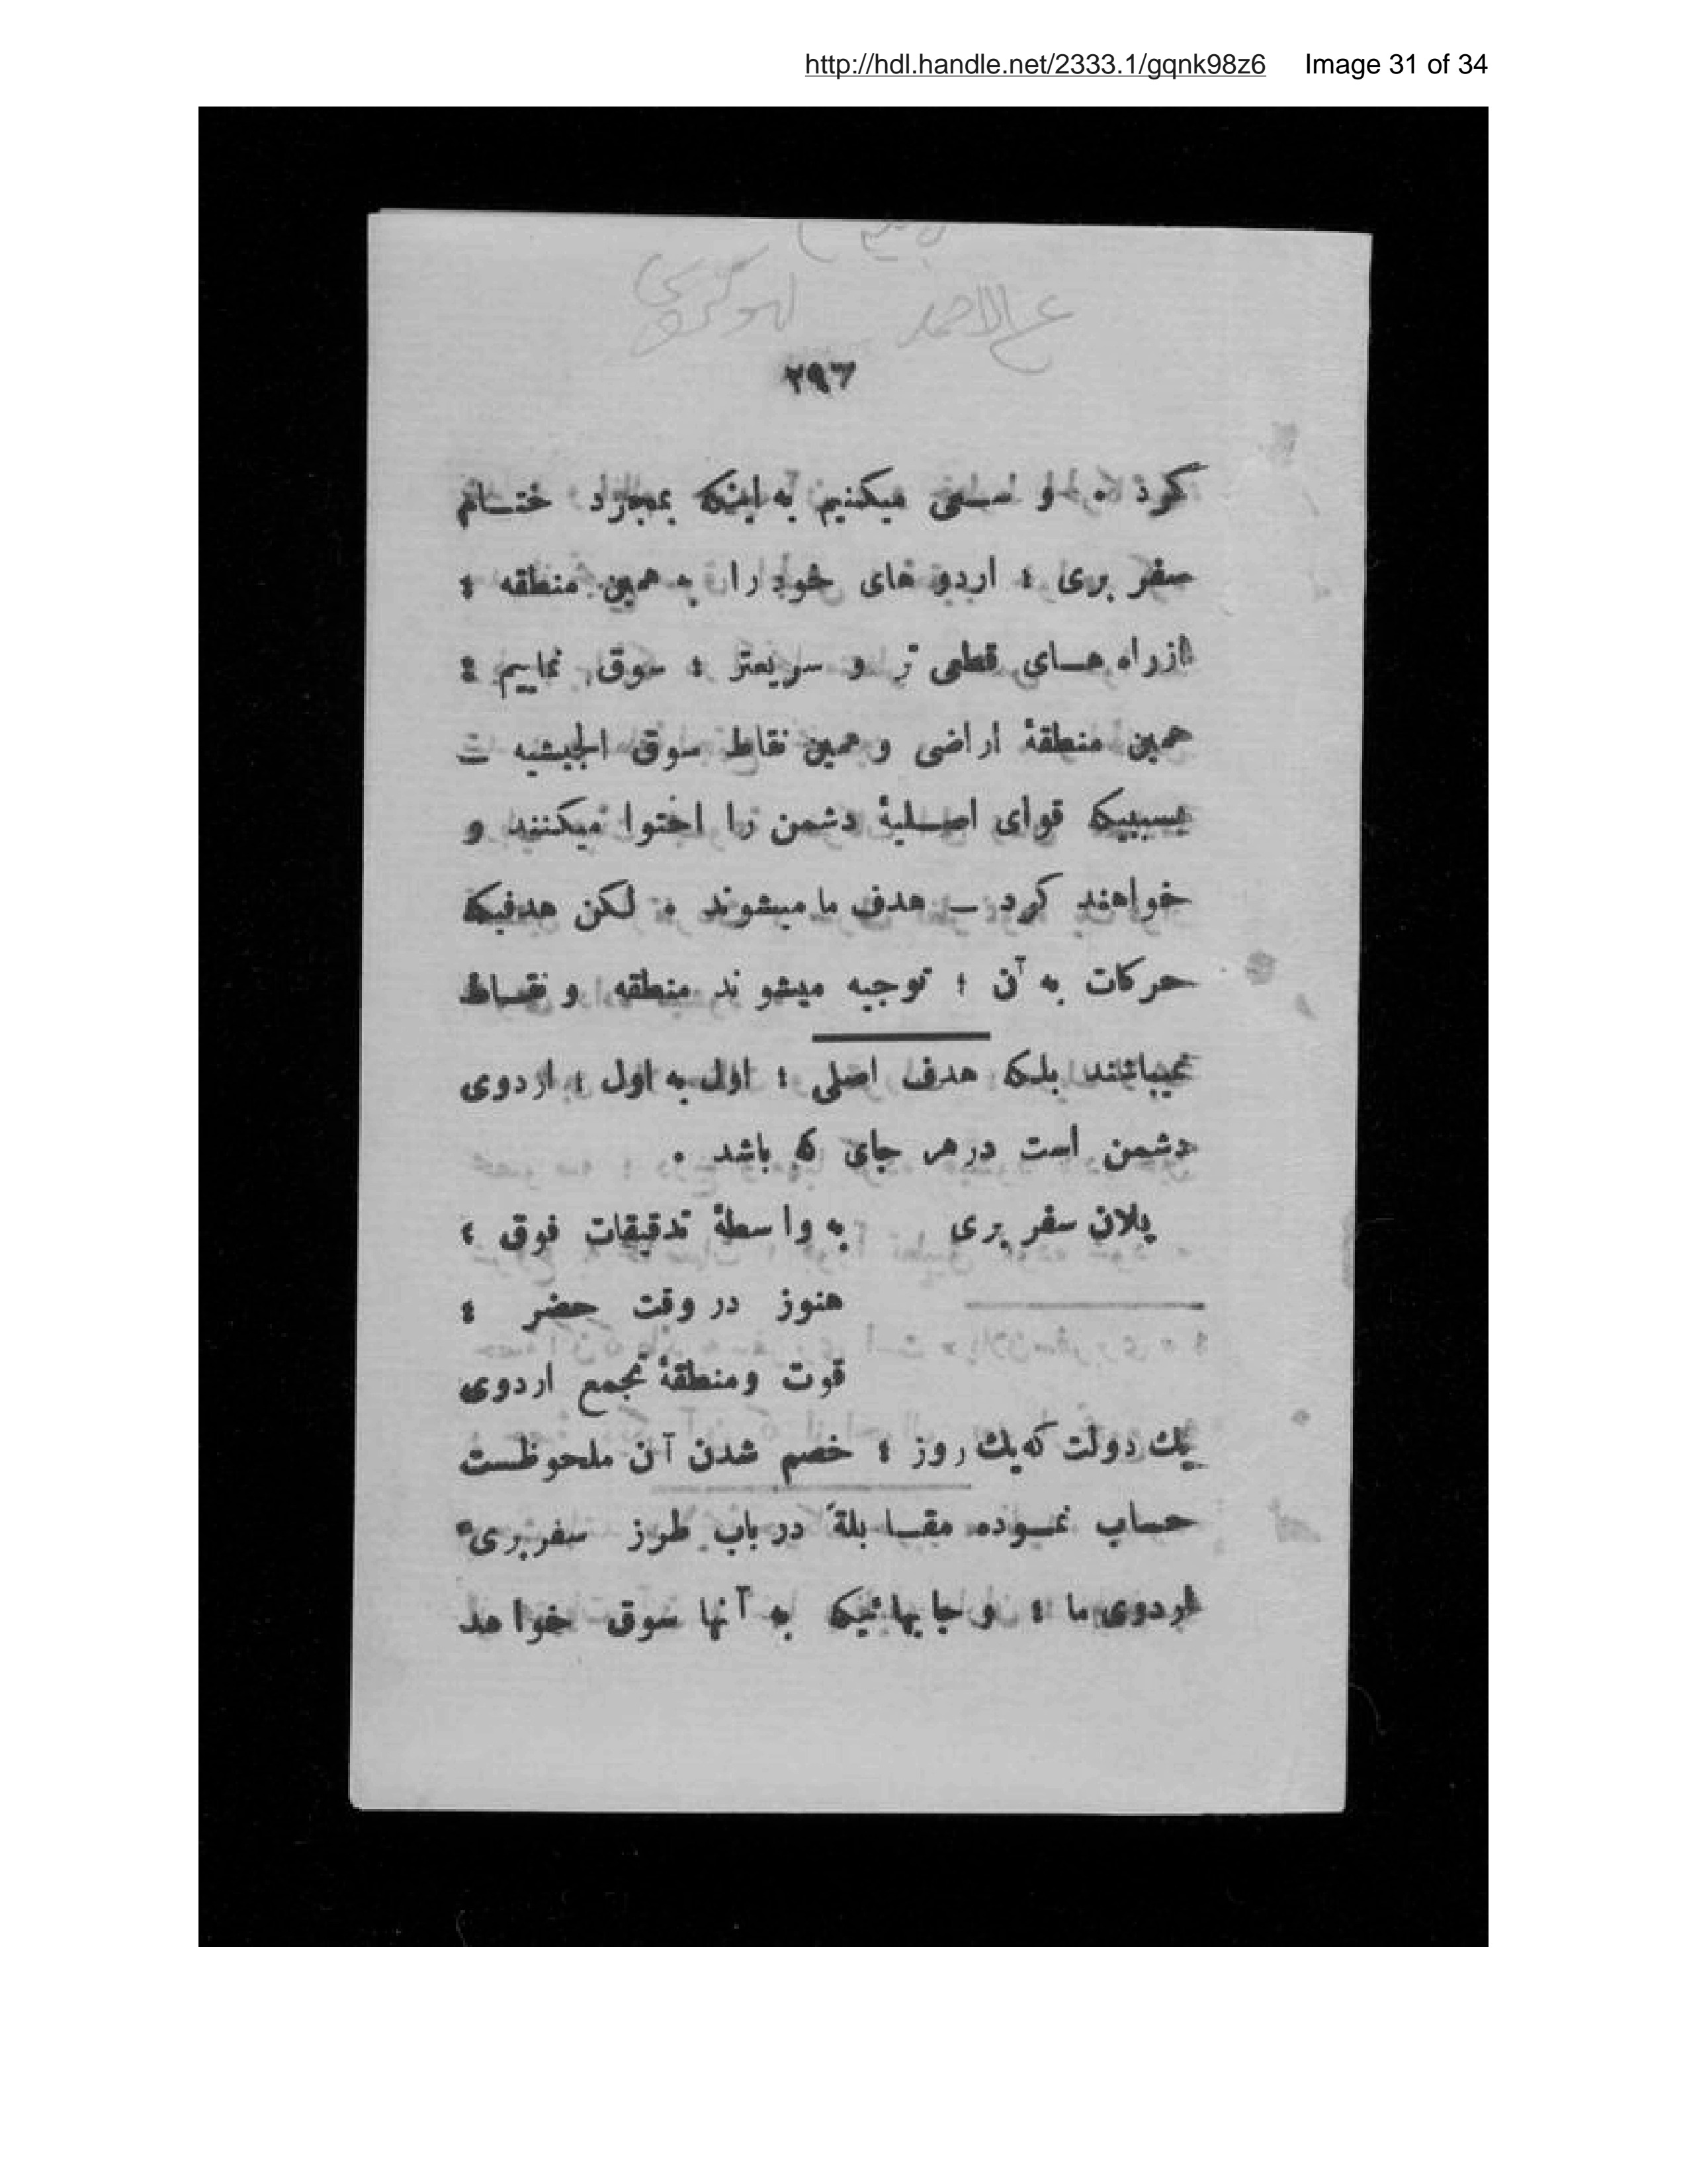 http://hdl.handle.net/2333.1/gqnk98z6 Image 31 of 34
٢٩٦
کرد . و سعی میکنیم به اینکه بمجرد ختام
سفر بری ؛ اردو های خود را به همین منطقه ؛
از راه های قطعی تر و سریعتر ؛ سوق نماییم ؛
همین منطقهٔ اراضی و همین نقاط سوق الجیشیه –
بسببیکه قوای اصلیهٔ دشمن را احتوا میکنند و
خواهند کرد – هدف ما میشوند . لکن هدفیکه
حرکات به آن ؛ توجیه میشوند منطقه و نقاط
نمیباشند بلکه هدف اصلی ؛ اول به اول ؛ اردوی
دشمن است در هر جای که باشد .
پلان سفر بری به واسطهٔ تدقیقات فوق ؛
هنوز در وقت حضر ؛
قوت و منطقهٔ تجمع اردوی
یك دولت که یك روز ؛ خصم شدن آن ملحوظست
حساب نموده مقابلةً در باب طرز سفربریء
اردوی ما ؛ و جایهائیکه به آنها سوق خواهد